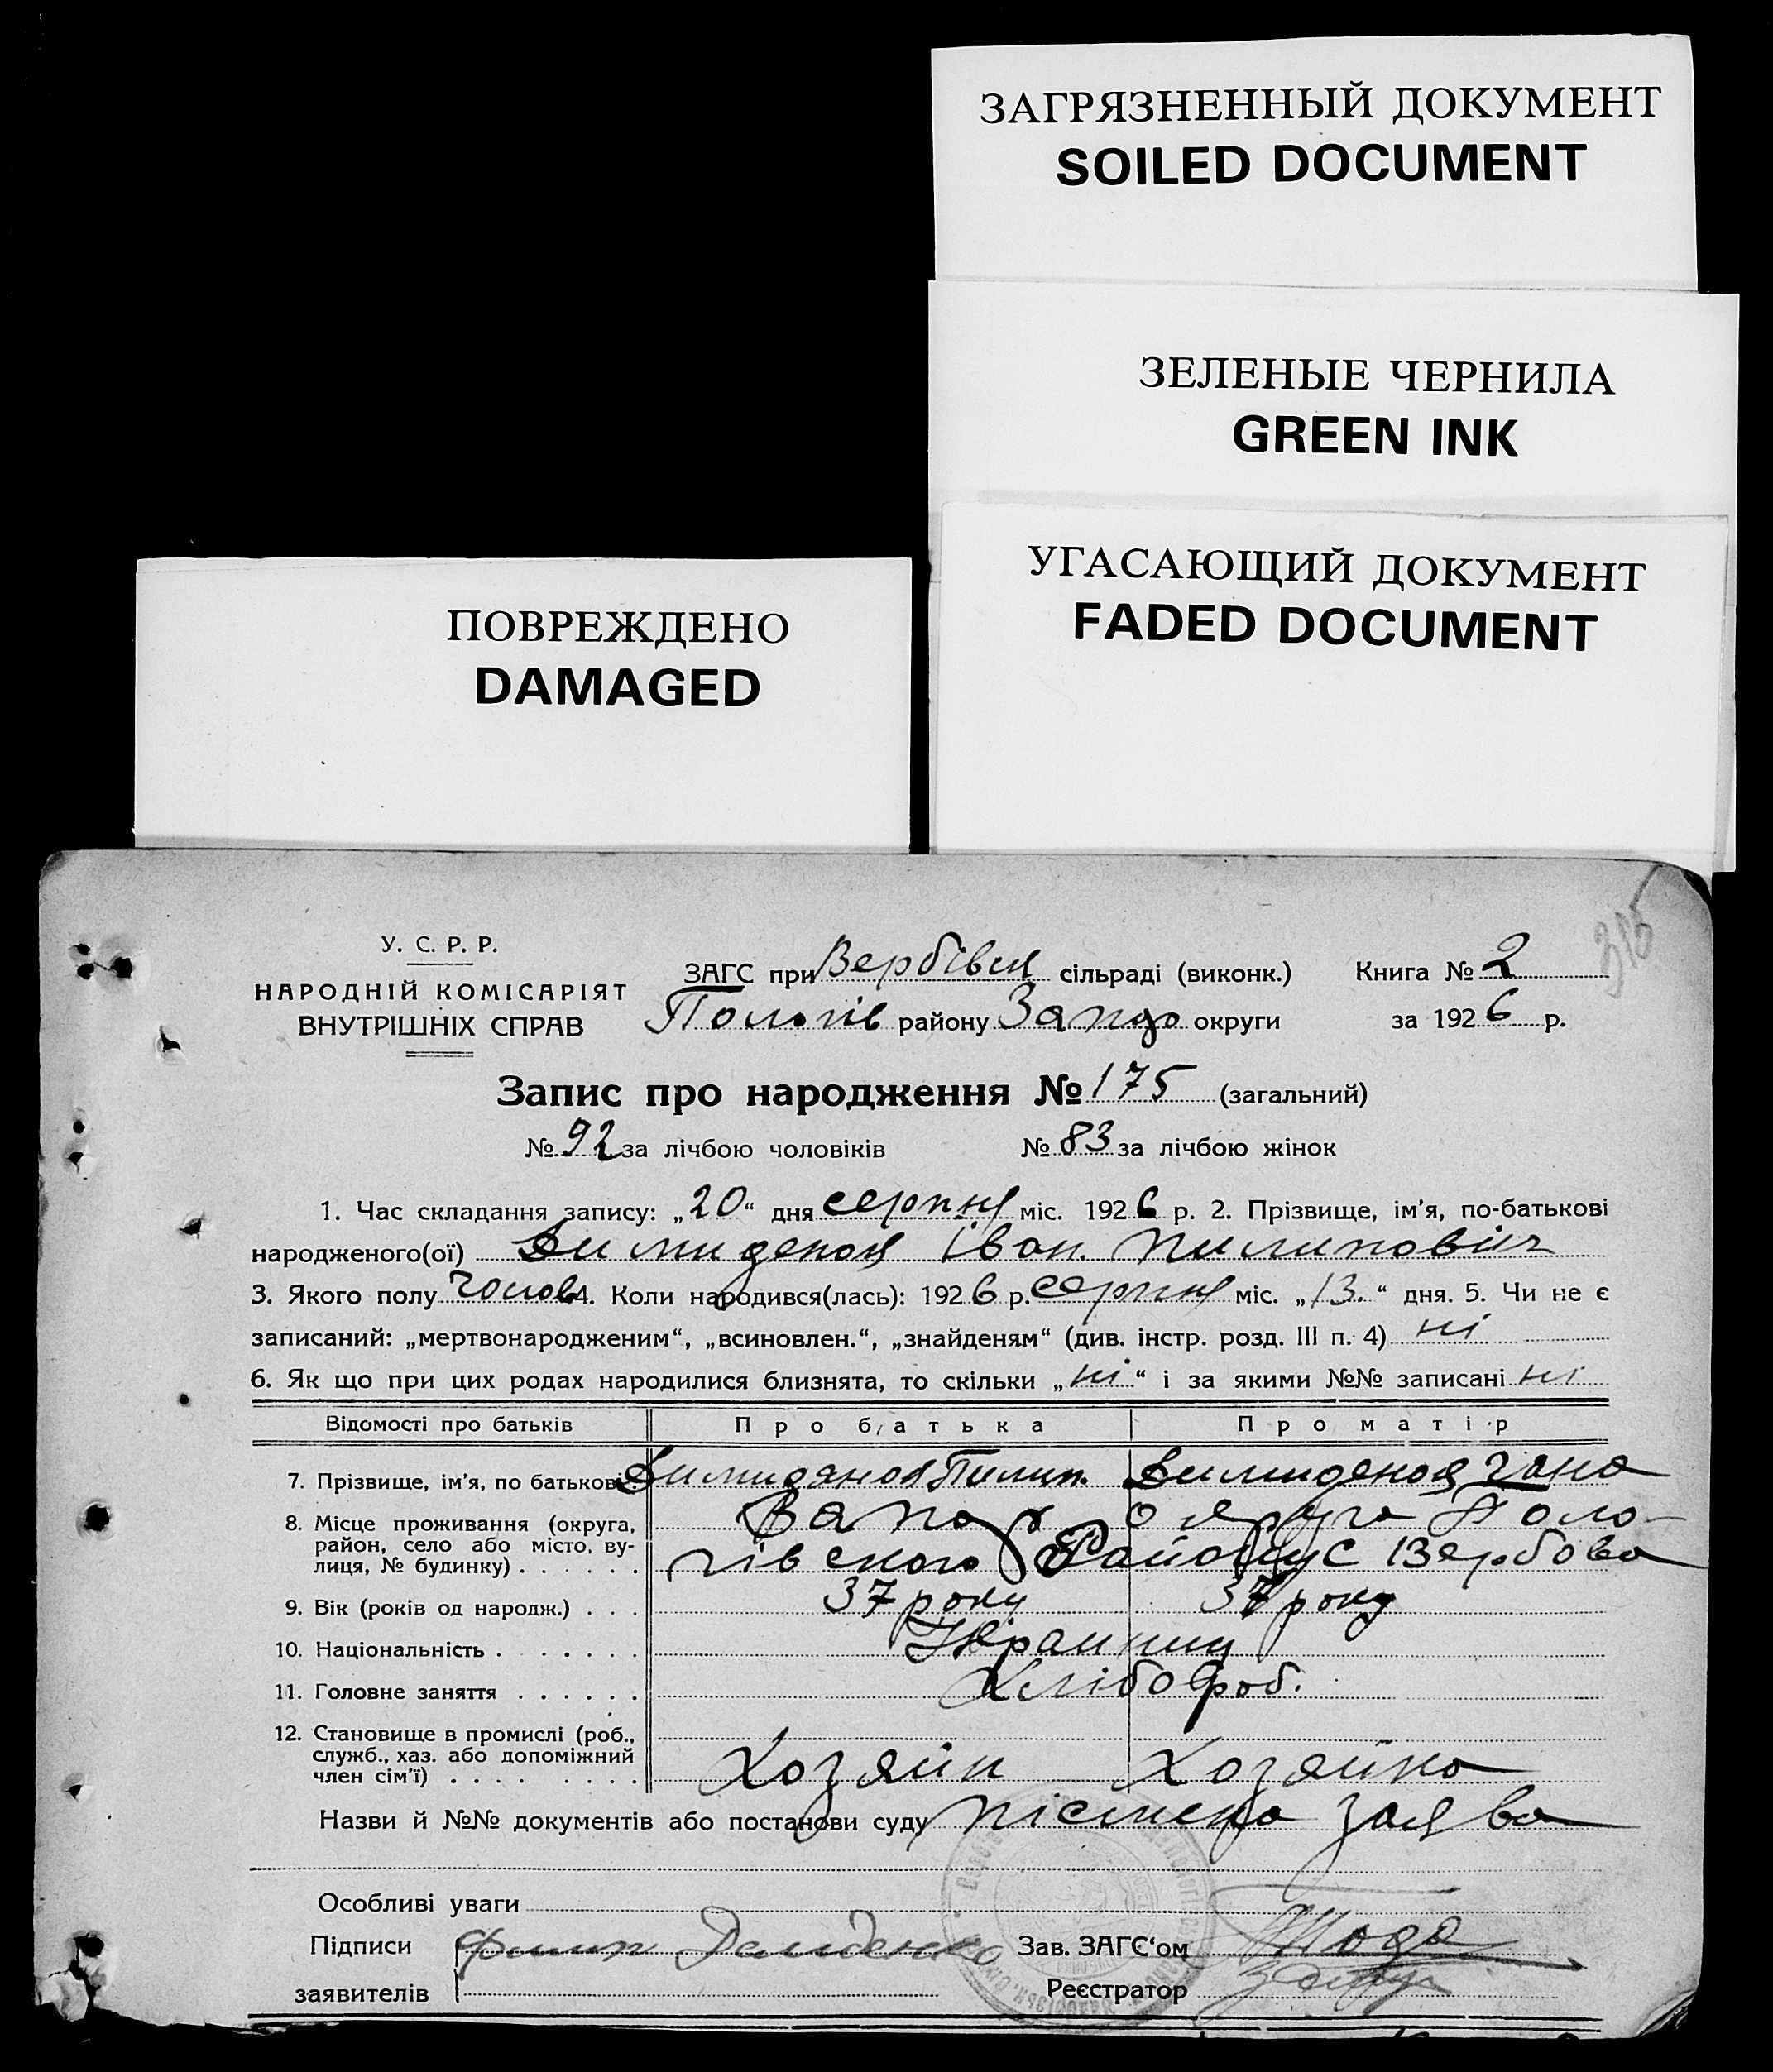 ЗАГРЯЗНЕННЫЙ ДОКУМЕНТ
SOILED DOCUMENT
ЗЕЛЕНЫЕ ЧЕРНИЛА
GREEN INK
УГАСАЮЩИЙ ДОКУМЕНТ
FADED DOCUMENT
ПОВРЕЖДЕНО
DAMAGED
315
У. С. Р. Р.
НАРОДНІЙ КОМІСАРІЯТ
ВНУТРІШНІХ СПРАВ
ЗАГС при Вербівся сільраді (виконк.) Книга № 2
Пологів району Запор округи за 1926 р.
Запис про народження № 175 (загальний)
№ 92 за лічбою чоловіків № 83 за лічбою жінок
1. Час складання запису: „20“ дня серпня міс. 1926 р. 2. Прізвище, ім'я, по-батькові
народженого(ої) Іван Пилиповіч
3. Якого полу Чолов 4. Коли народився(лась): 1926 р. серпня міс. „13.“ дня. 5. Чи не є
записаний: „мертвонародженим“, „всиновлен.“, „знайденям“ (див. інстр. розд. III п. 4) ні
6. Як що при цих родах народилися близнята, то скільки „ні“ і за якими №№ записані ні
Відомості про батьків Про батька Про матір
7. Прізвище, ім'я, по батькові Пилип.
8. Місце проживання (округа, Запор округа Поло-
район, село або місто, ву- гівського Району с Вербова
лиця, № будинку) . . . . . .
9. Вік (років од народж.) . . . 37 року 37 року
10. Національність . . . . . . Украинци
11. Головне заняття . . . . . . Хлібороб.
12. Становище в промислі (роб.,
служб., хаз. або допоміжний Хозяин Хозяйка
член сім'ї) . . . . . . . .
Назви й №№ документів або постанови суду пісмена заява
Особливі уваги
Підписи Филип Демиденко Зав. ЗАГС'ом
заявителів Реєстратор